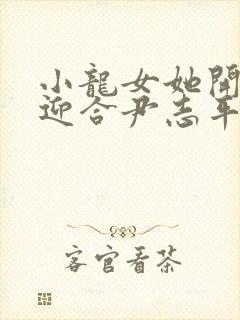 小龍女她開
迎合尹志平
客官看茶